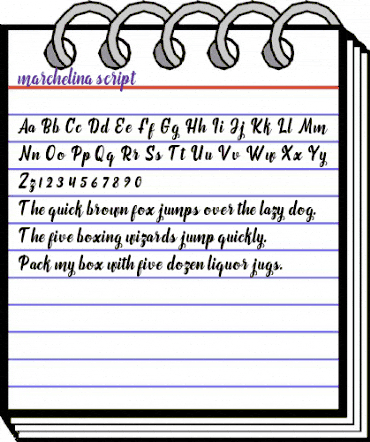 marchelina script
Aa Bb Cc Dd Ee Ff Gg Hh Ii Jj Kk Ll Mm
Nn Oo Pp Qq Rr Ss Tt Uu Vv Ww Xx Yy
Zz 1 2 3 4 5 6 7 8 9 0
The quick brown fox jumps over the lazy dog.
The five boxing wizards jump quickly.
Pack my box with five dozen liquor jugs.